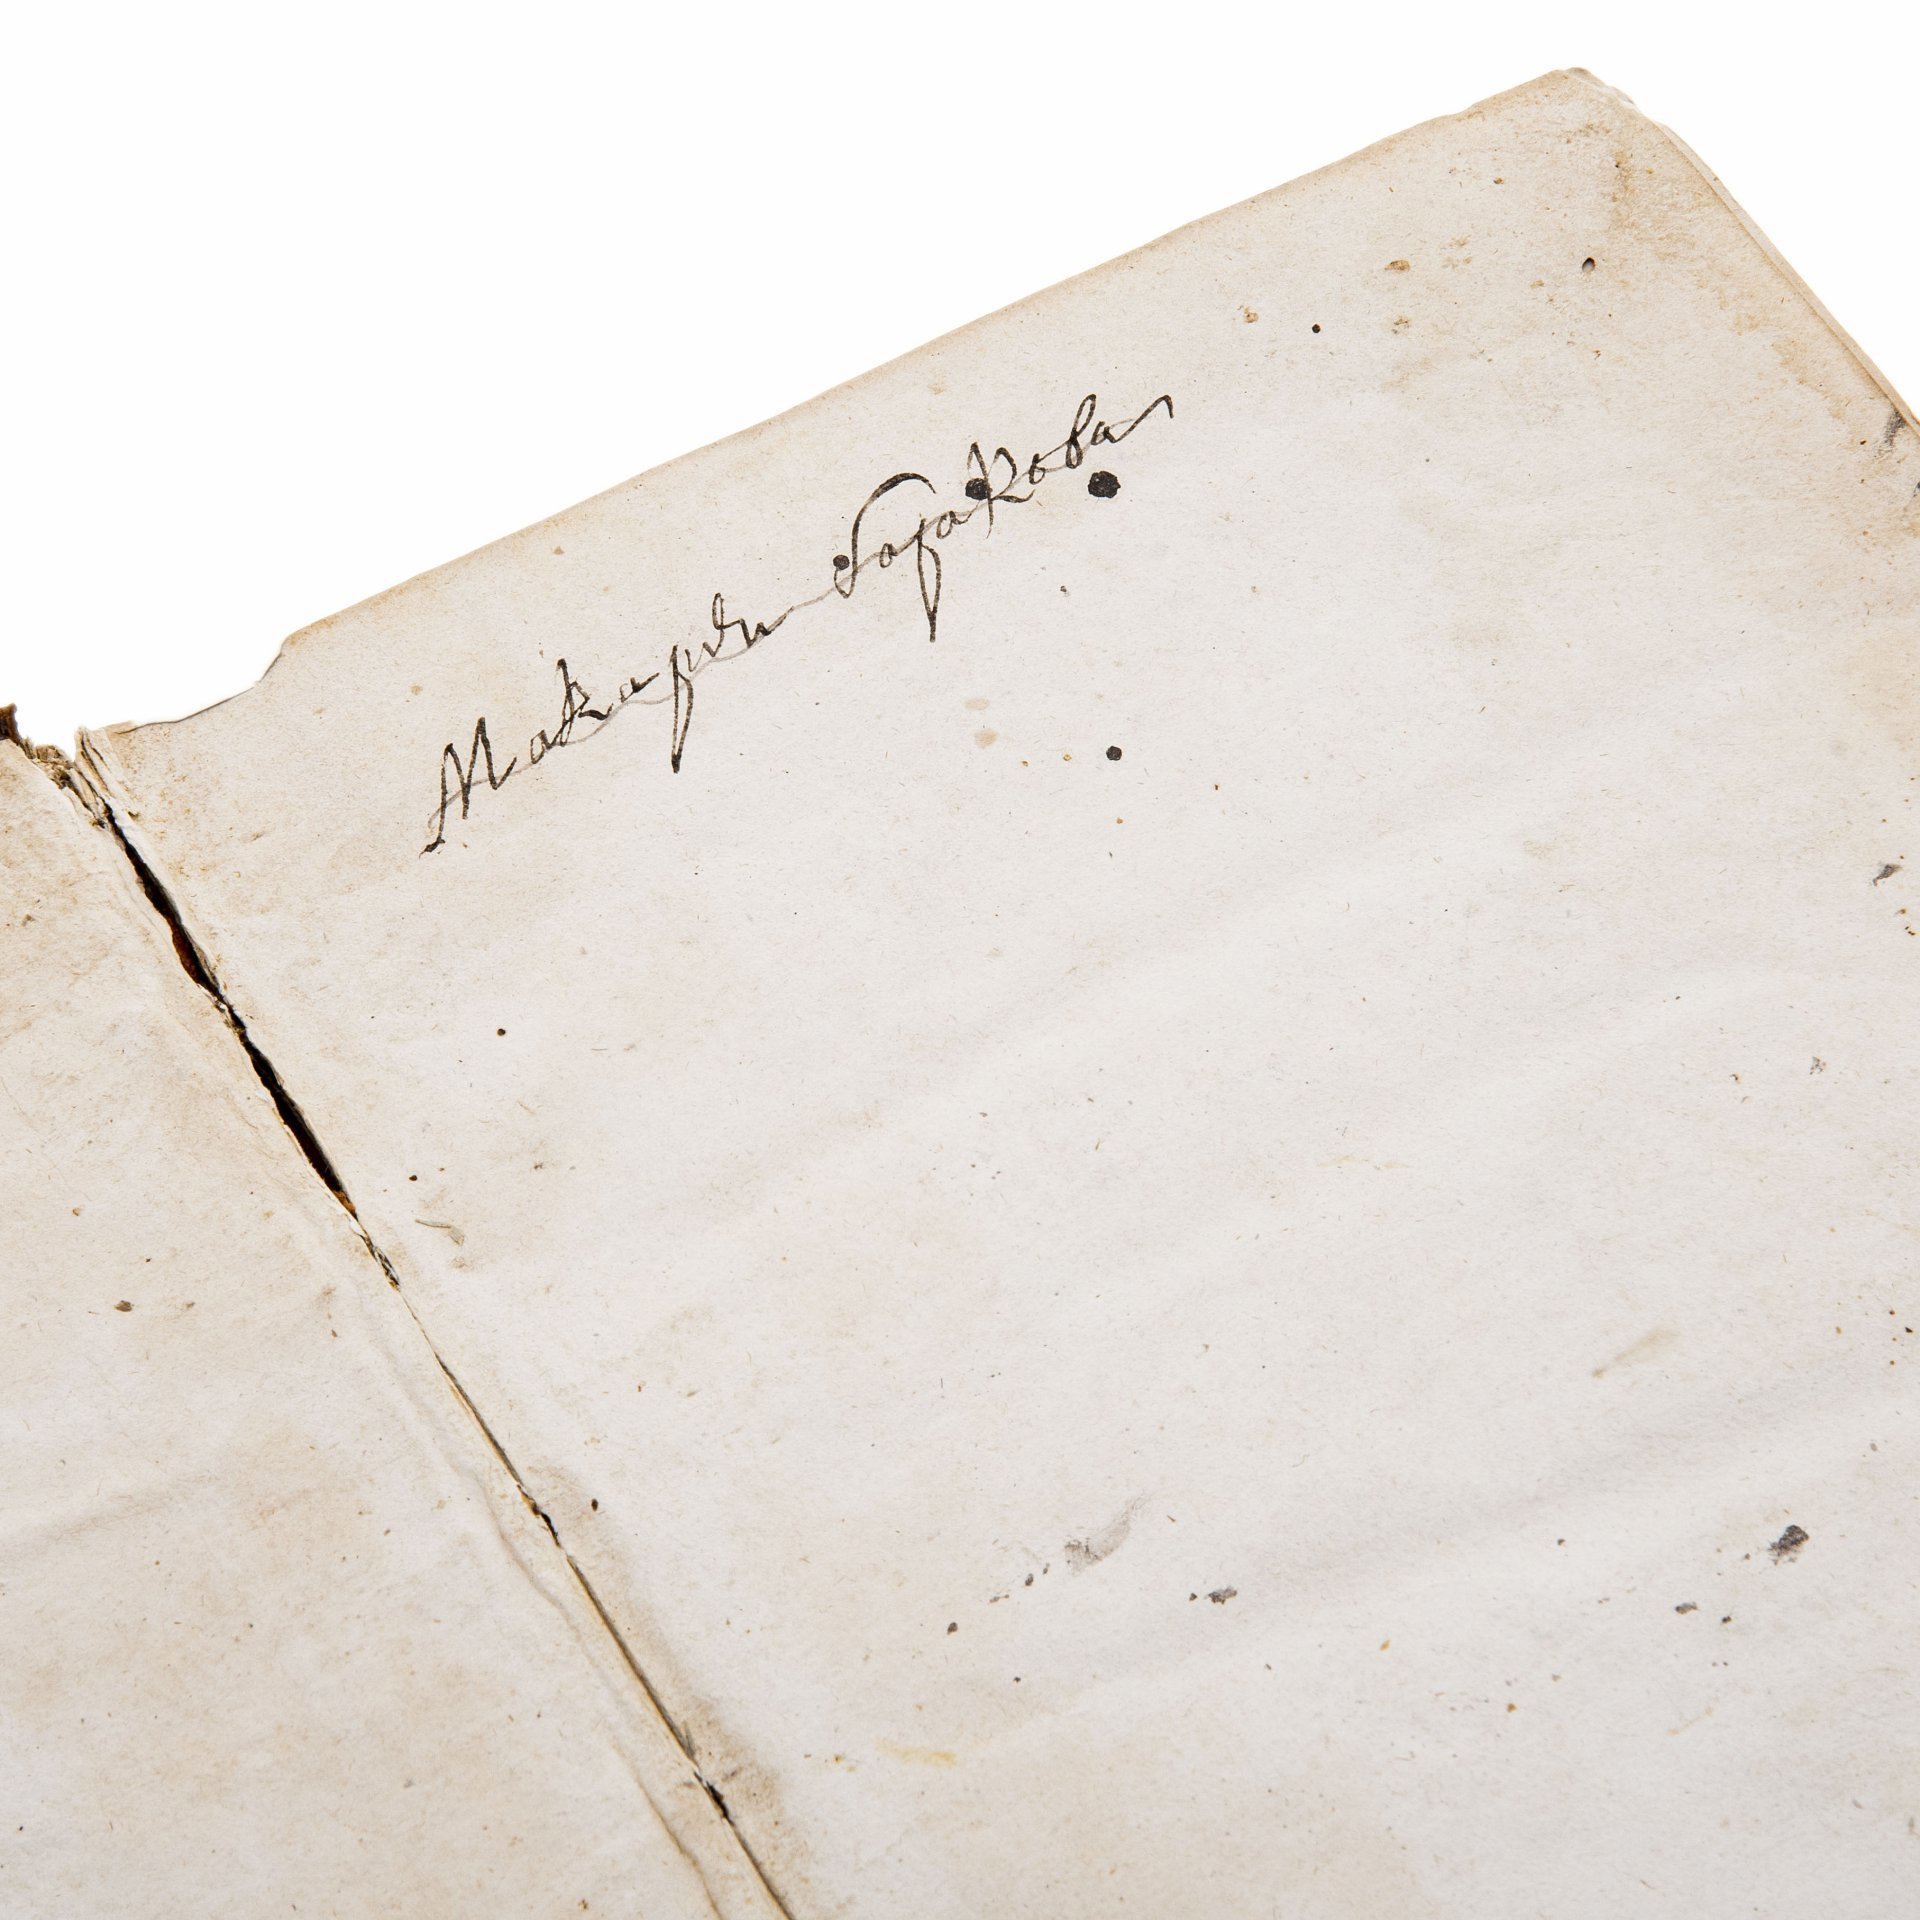 Макарѣи баракова